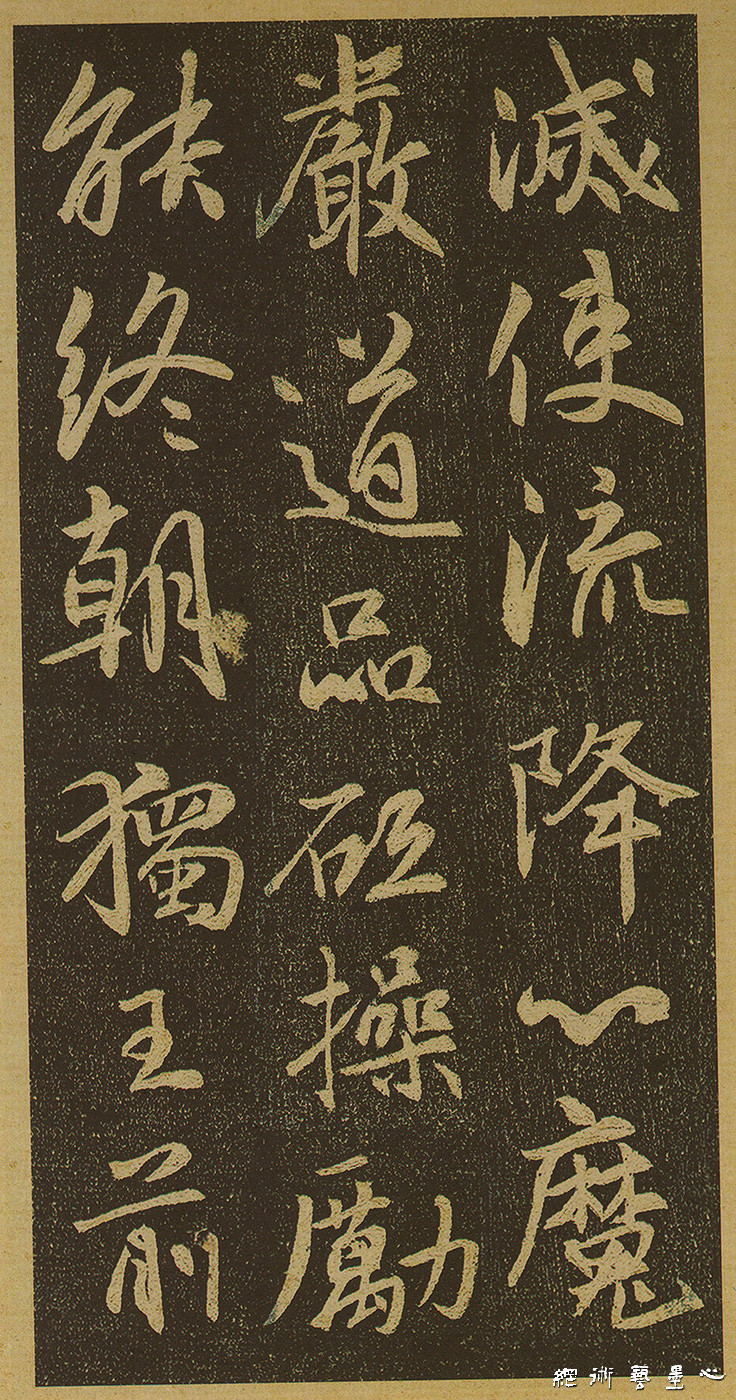 滅使流降心魔
嚴道品砥操勵
能終朝獨王前
心墨藝術網